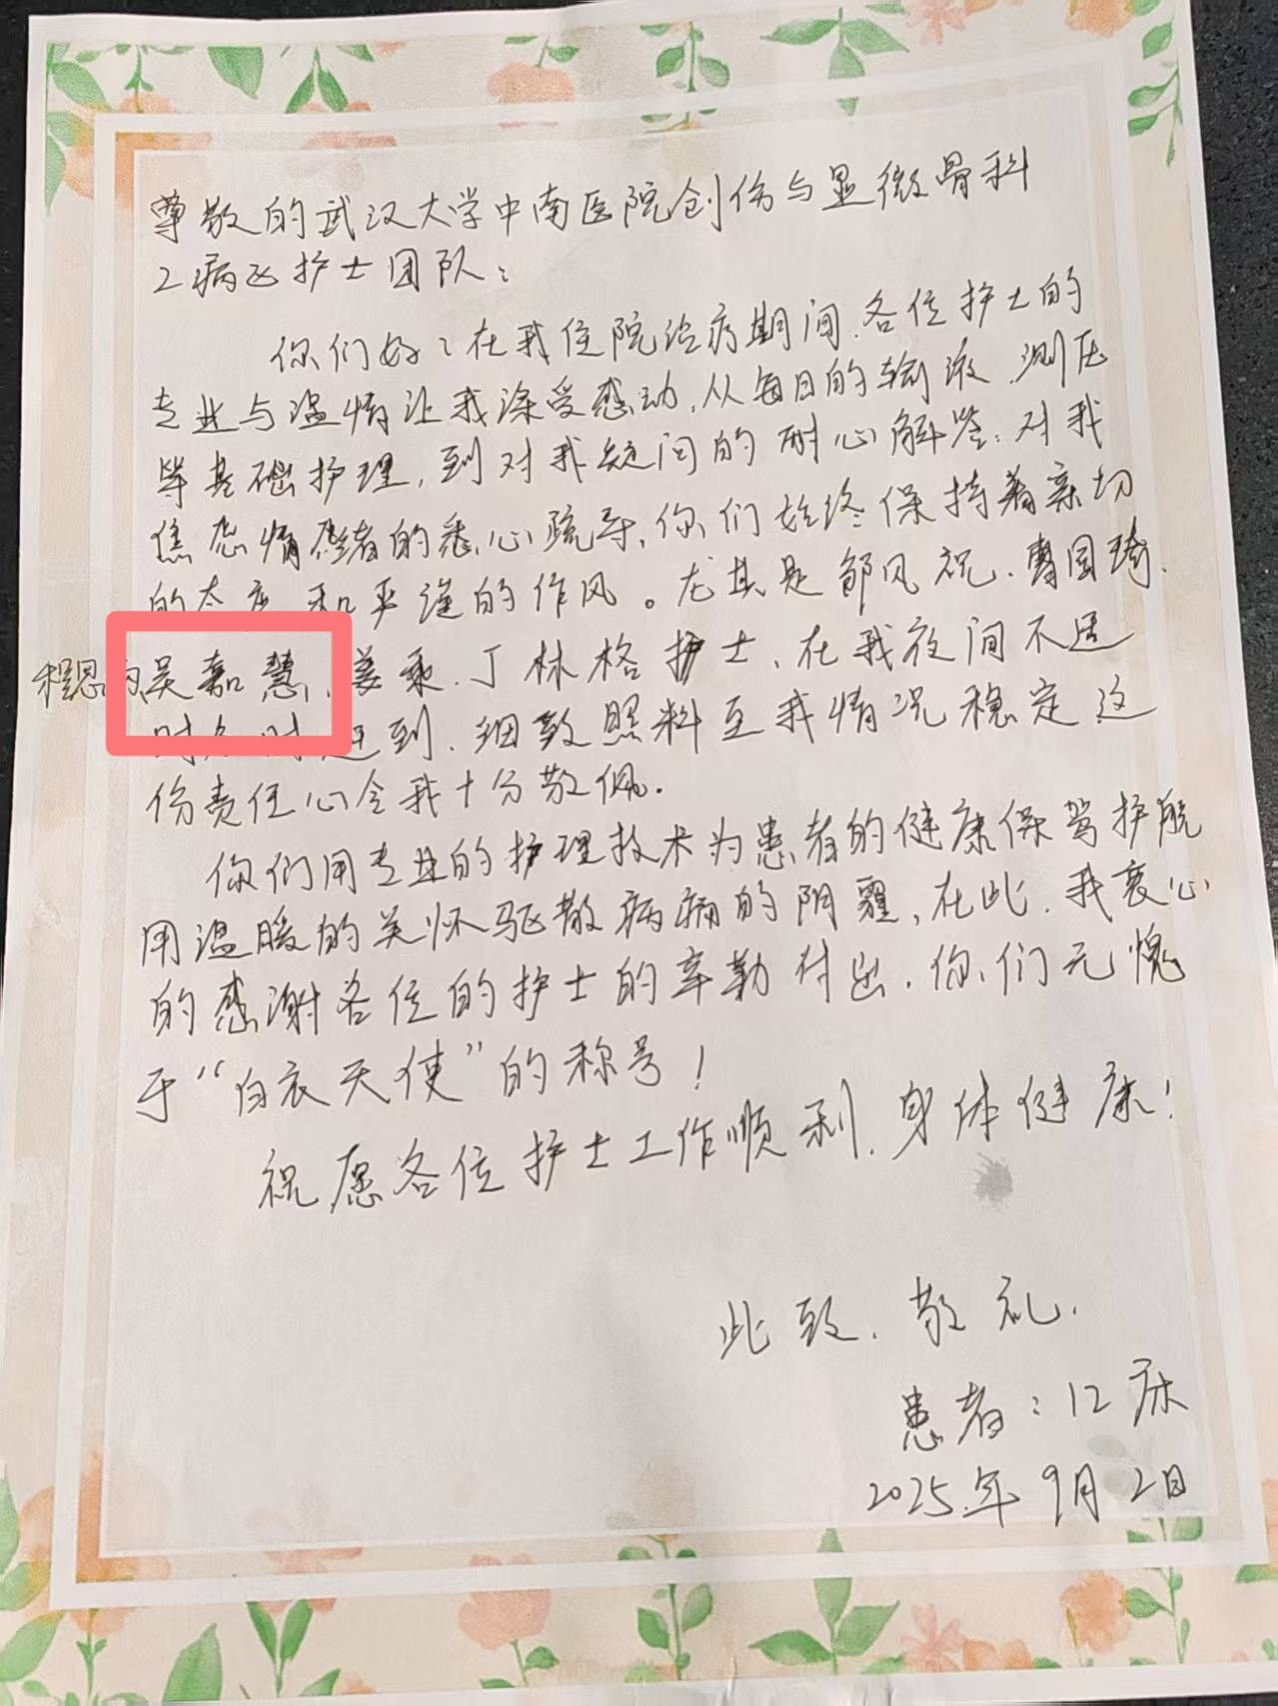 尊敬的武汉大学中南医院创伤与显微骨科
2病区护士团队：
你们好：在我住院治疗期间.各位护士的
专业与温情让我深受感动,从每日的输液.测压
等基础护理,到对我疑问的耐心解答:对我
焦虑情绪的悉心疏导,你们始终保持着亲切
的态度和严谨的作风。尤其是邹凤祝.曹国琦.
程思 吴嘉慧.姜乘.丁林格护士、在我夜间不适
时 时赶到.细致照料至我情况稳定这
份责任心令我十分敬佩.
你们用专业的护理技术为患者的健康保驾护航
用温暖的关怀驱散病痛的阴霾,在此.我衷心
的感谢各位的护士的辛勤付出.你们无愧
于“白衣天使”的称号!
祝愿各位护士工作顺利.身体健康!
此致.敬礼.
患者:12床
2025.年9月2日